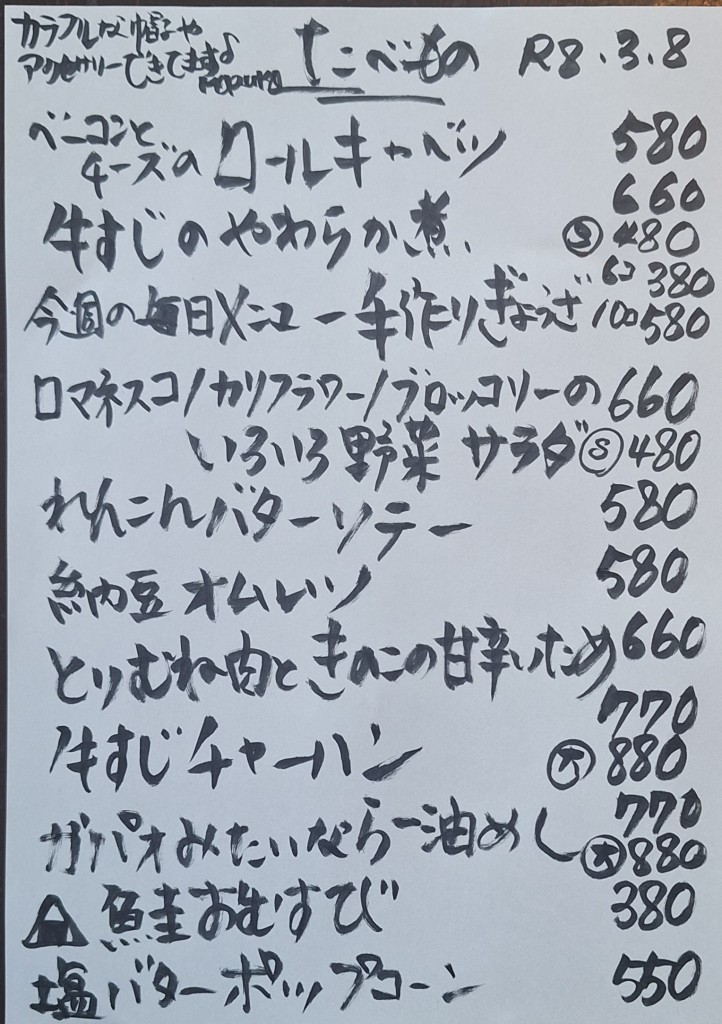 カラフルな帽子や
アクセサリーできてます♪
popura
たべもの R8.3.8
ベーコンと
チーズの ロールキャベツ 580
660
牛すじのやわらか煮 Ⓢ480
6コ 380
今週の毎日メニュー 手作りぎょうざ 10コ 580
ロマネスコ/カリフラワー/ブロッコリーの 660
いろいろ野菜 サラダ Ⓢ480
れんこんバターソテー 580
納豆オムレツ 580
とりむね肉ときのこの甘辛いため 660
770
牛すじチャーハン 大880
770
ガパオみたいならー油めし 大880
鮭おむすび 380
塩バターポップコーン 550